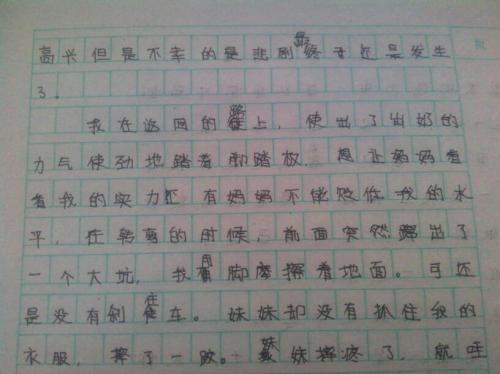 高兴但是不幸的是悲剧最终还是发生
了。
我在返回的路上，使出了出奶的
力气使劲地踏着脚踏板，想让妈妈看
看我的实力，有妈妈不能贬低我的水
平，在转弯的时候，前面突然蹿出了
一个大坑，我用脚摩擦着地面。可还
是没有刹住车。妹妹却没有抓住我的
衣服，摔了一跤。妹妹摔疼了，就哇